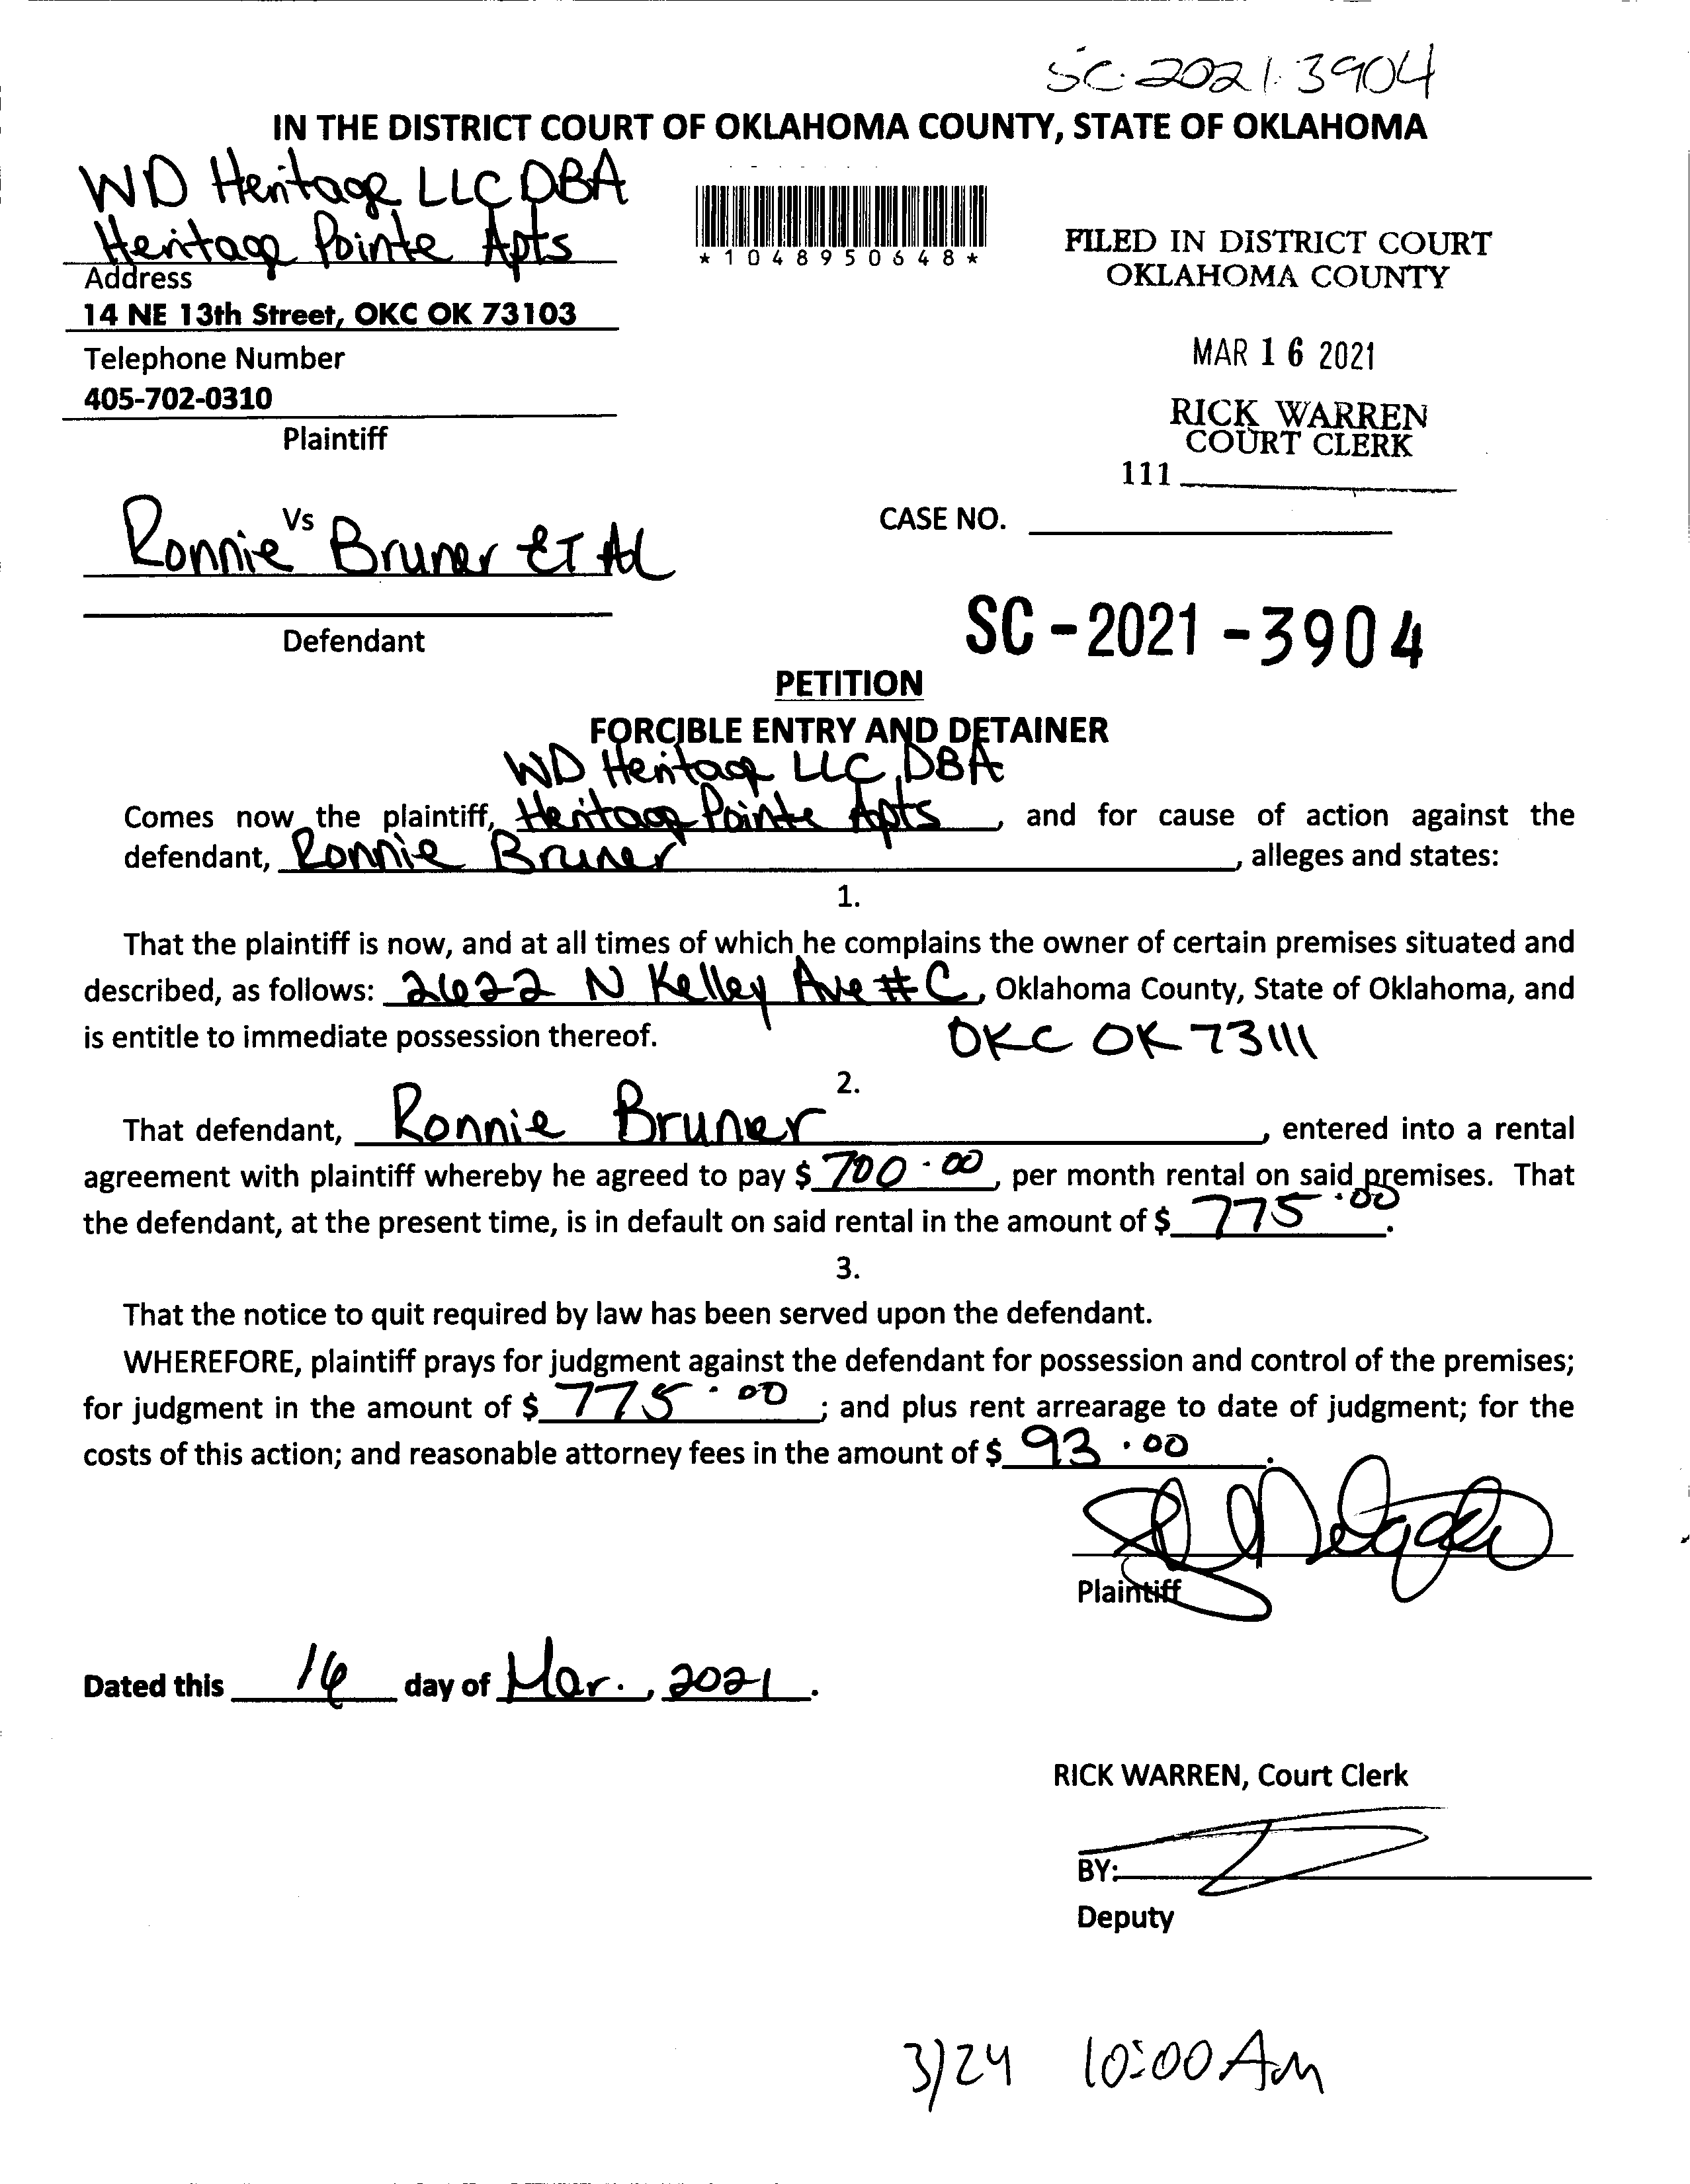 SC-2021-3904
IN THE DISTRICT COURT OF OKLAHOMA COUNTY, STATE OF OKLAHOMA
WD Heritage LLC DBA
Heritage Pointe Apts
Address
14 NE 13th Street, OKC OK 73103
Telephone Number
405-702-0310
Plaintiff
*1048950648*
FILED IN DISTRICT COURT
OKLAHOMA COUNTY
MAR 16 2021
RICK WARREN
COURT CLERK
111
Vs
Ronnie Bruner ET Al
Defendant
CASE NO.
SC-2021-3904
PETITION
FORCIBLE ENTRY AND DETAINER
WD Heritage LLC DBA
Comes now the plaintiff, Heritage Pointe Apts, and for cause of action against the
defendant, Ronnie Bruner, alleges and states:
1.
That the plaintiff is now, and at all times of which he complains the owner of certain premises situated and
described, as follows: 2622 N Kelley Ave #C, Oklahoma County, State of Oklahoma, and
is entitle to immediate possession thereof. OKC OK 73111
2.
That defendant, Ronnie Bruner, entered into a rental
agreement with plaintiff whereby he agreed to pay $ 700.00, per month rental on said premises. That
the defendant, at the present time, is in default on said rental in the amount of $ 775.00.
3.
That the notice to quit required by law has been served upon the defendant.
WHEREFORE, plaintiff prays for judgment against the defendant for possession and control of the premises;
for judgment in the amount of $ 775.00; and plus rent arrearage to date of judgment; for the
costs of this action; and reasonable attorney fees in the amount of $ 93.00.
Plaintiff
Dated this 16 day of Mar., 2021.
RICK WARREN, Court Clerk
BY:
Deputy
3/24 10:00 AM